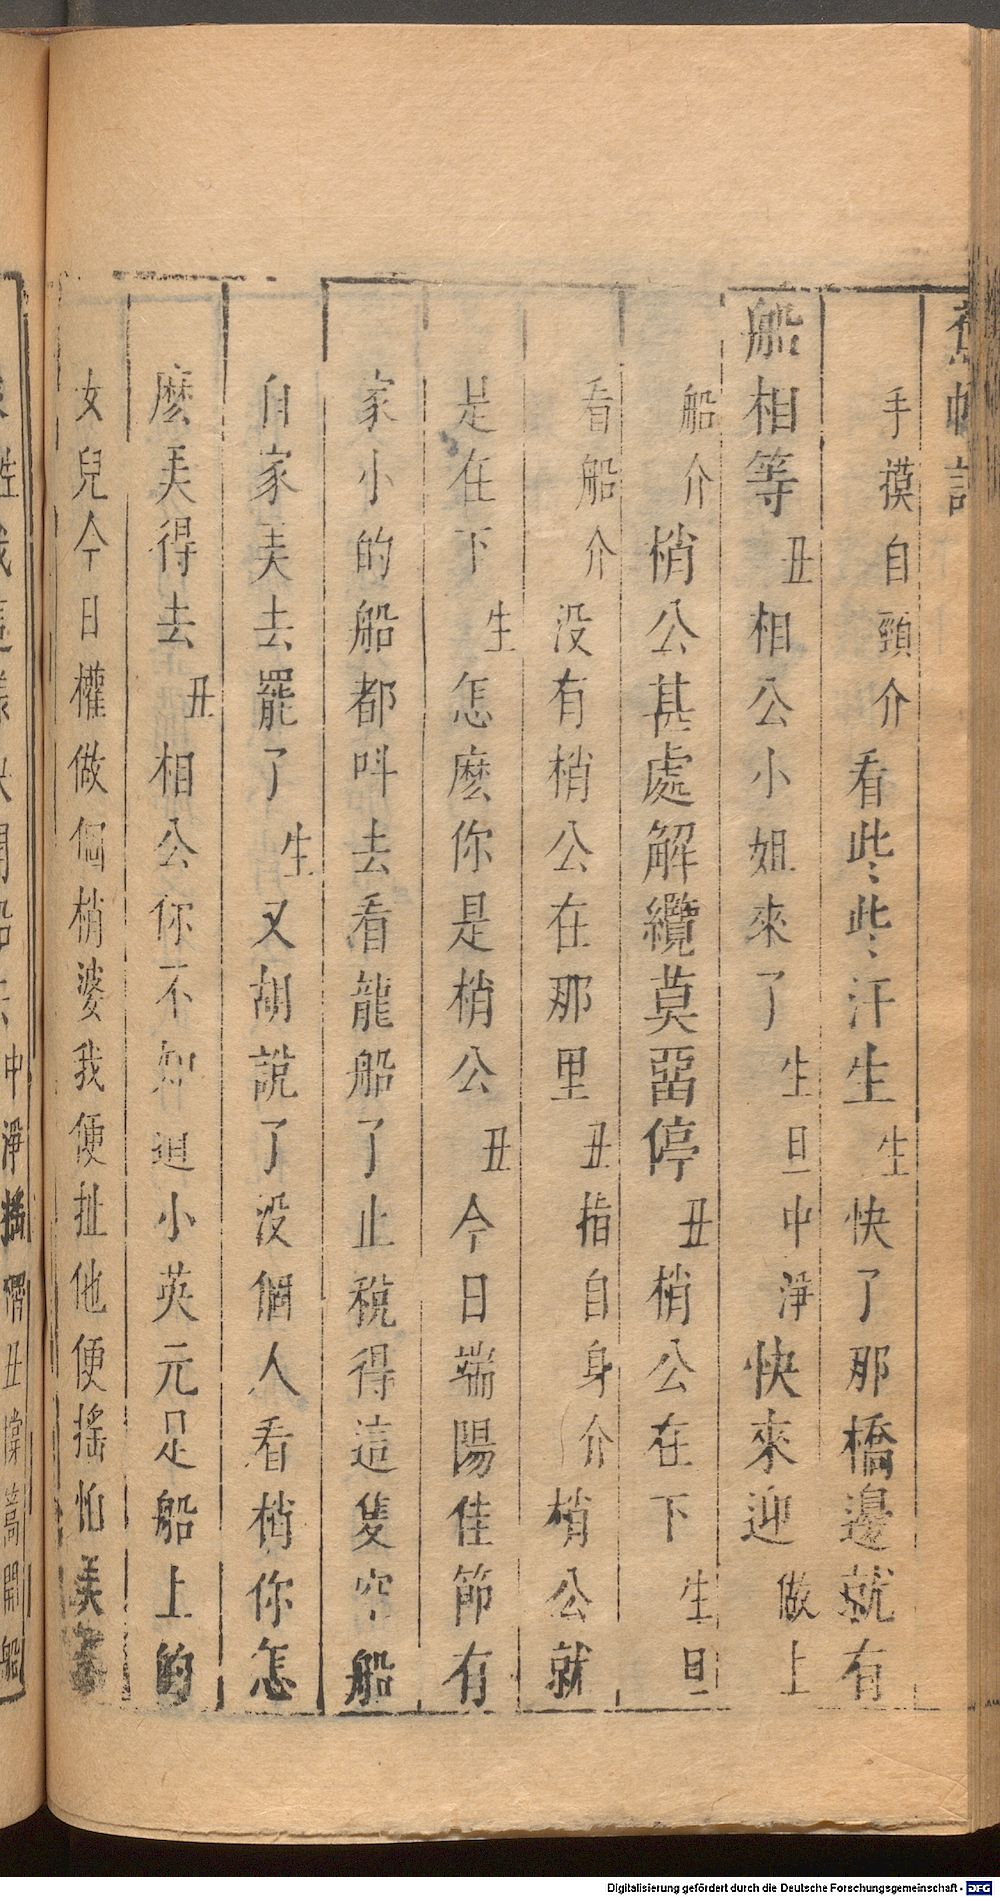 蕉帕記
手摸自頸介看些些汗生生快了那橋邊就有
船相等丑相公小姐來了生旦中淨快來迎做上
船介梢公甚處解纜莫畱停丑梢公在下生旦
看船介没有梢公在那里丑指自身介梢公就
是在下生怎麽你是梢公丑今日端陽佳節有
家小的船都呌去看龍船了止稅得這隻空船
自家美去罷了生又胡說了没個人看梢你怎
麽美得去丑相公你不知這小英元是船上的
女兒今日權做個梢婆我便扯他便搖怕美
中淨搖櫓丑撑篙開船
Digitalisierung gefördert durch die Deutsche Forschungsgemeinschaft - DFG